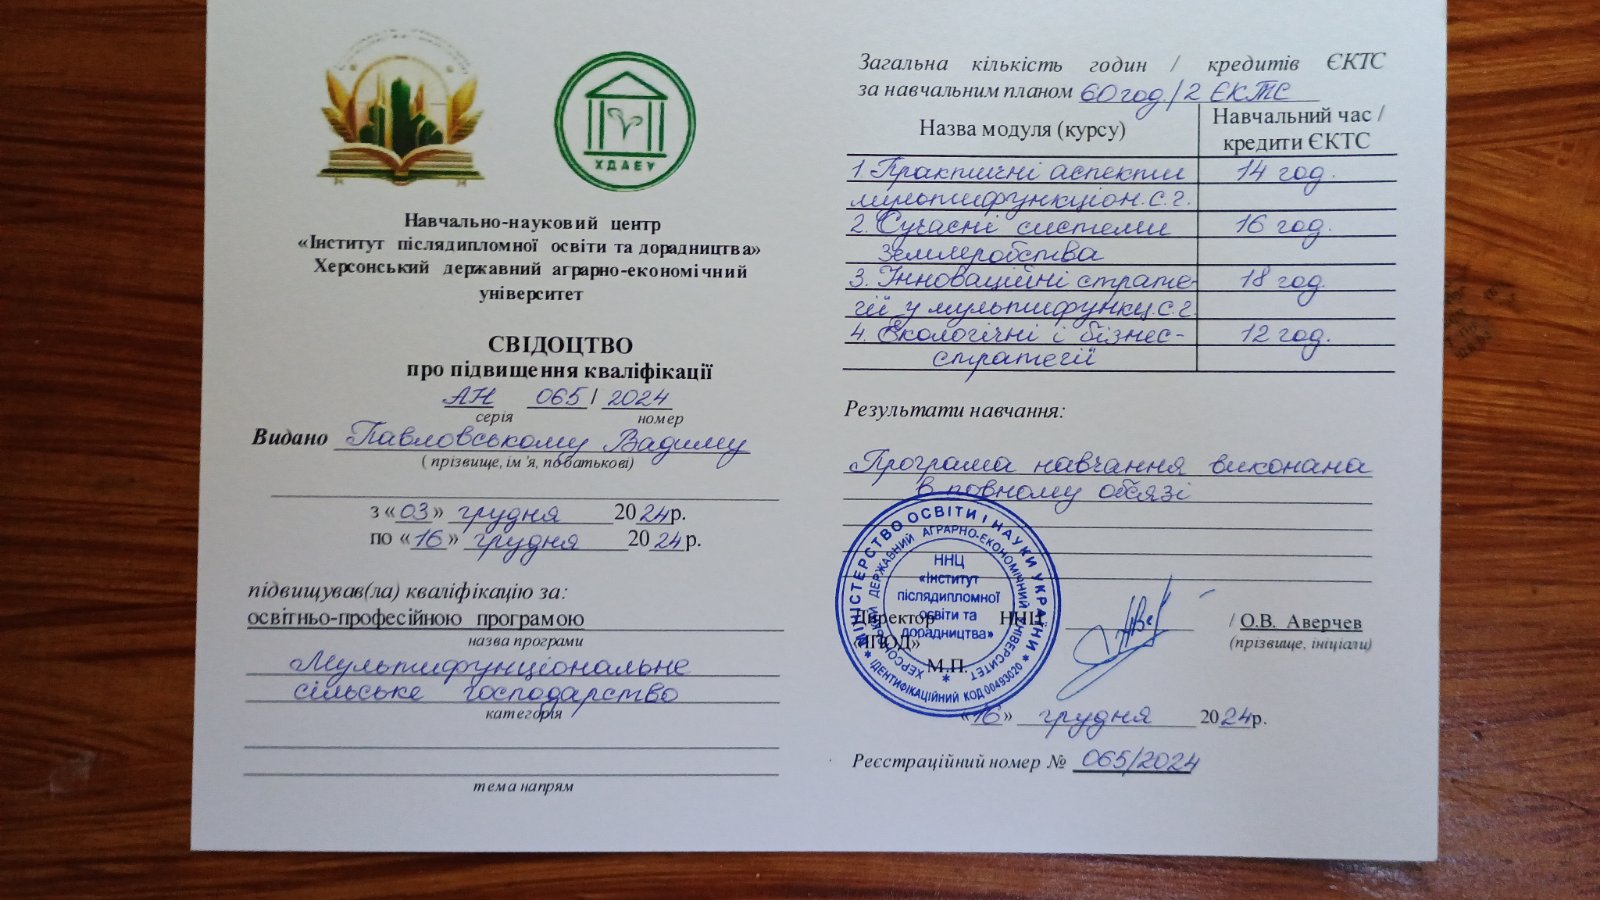 ХДАЕУ
Навчально-науковий центр
«Інститут післядипломної освіти та дорадництва»
Херсонський державний аграрно-економічний
університет
СВІДОЦТВО
про підвищення кваліфікації
АН 065 / 2024
серія номер
Видано Павловському Вадиму
( прізвище, ім’я, по батькові)
з «03» грудня 2024р.
по «16» грудня 2024р.
підвищував(ла) кваліфікацію за:
освітньо-професійною програмою
назва програми
Мультифунціональне
сільське господарство
категорія
тема напрям
Загальна кількість годин / кредитів ЄКТС
за навчальним планом 60 год. / 2 ЄКТС
Назва модуля (курсу) Навчальний час /
кредити ЄКТС
1. Практичні аспекти 14 год.
мультифункціон. с. г.
2. Сучасні системи 16 год.
землеробства
3. Інноваційні страте- 18 год.
гії у мультифункц. с. г.
4. Екологічні і бізнес- 12 год.
стратегії
Результати навчання:
Програма навчання виконана
в повному обсязі
МІНІСТЕРСТВО ОСВІТИ І НАУКИ УКРАЇНИ
ХЕРСОНСЬКИЙ ДЕРЖАВНИЙ АГРАРНО-ЕКОНОМІЧНИЙ УНІВЕРСИТЕТ
ІДЕНТИФІКАЦІЙНИЙ КОД 00493020
ННЦ
«Інститут
післядипломної
освіти та
дорадництва»
Директор ННЦ / О.В. Аверчев
«ІПОД» (прізвище, ініціали)
М.П.
«16» грудня 2024р.
Реєстраційний номер № 065/2024